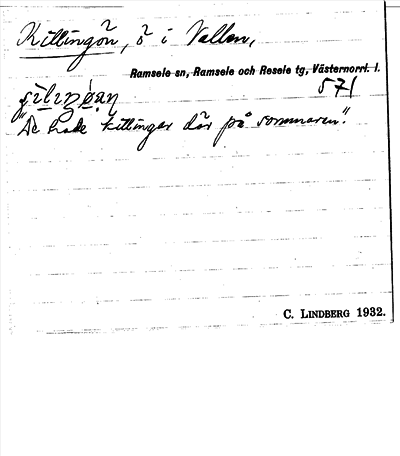 Killingön, ö i Vallen,
Ramsele sn, Ramsele och Resele tg, Västernorrl. l.
571
"De hade killingar där på sommaren".
C. LINDBERG 1932.